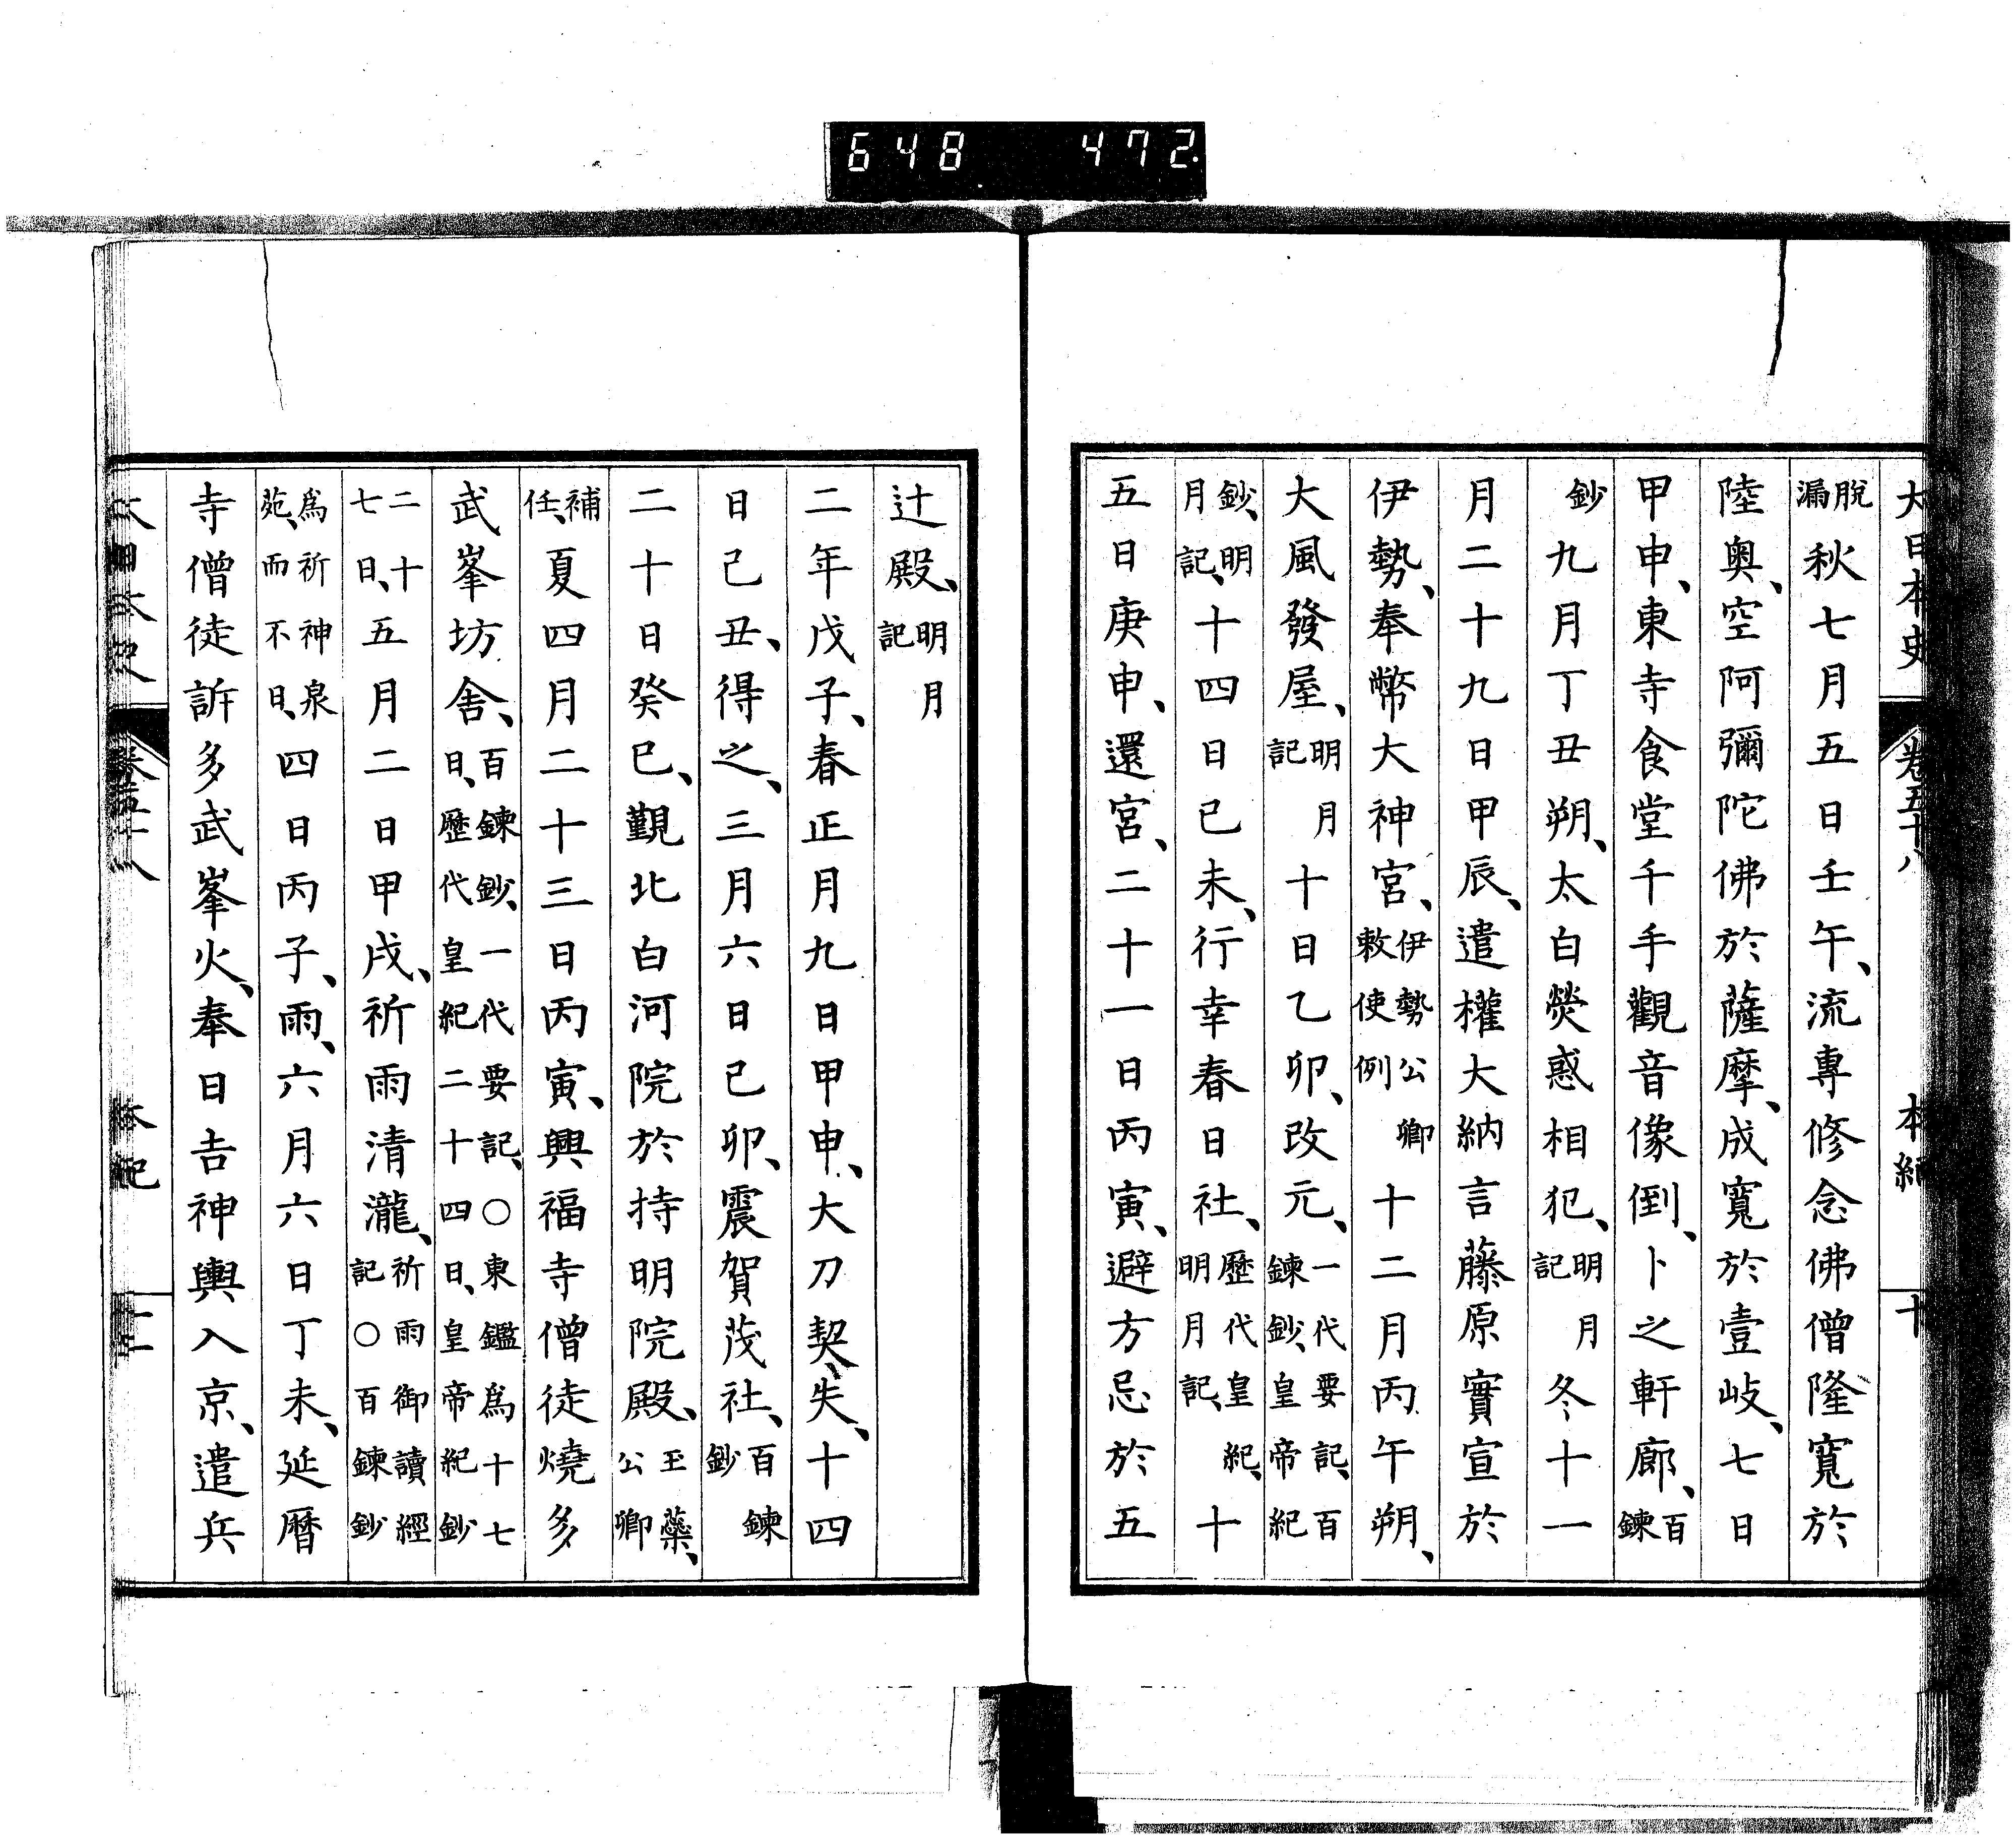 648 472
大日本史 卷五十八 本紀 十
脫漏秋七月五日壬午、流專修念佛僧隆寬於
陸奧、空阿彌陀佛於薩摩、成寬於壹岐、七日
甲申、東寺食堂千手觀音像倒、卜之軒廊、百鍊
鈔九月丁丑朔、太白熒惑相犯、明月記冬十一
月二十九日甲辰、遣權大納言藤原實宣於
伊勢、奉幣大神宮、伊勢公卿敕使例十二月丙午朔、
大風發屋、明月記十日乙卯、改元、一代要記、百鍊鈔、皇帝紀
鈔、明月記、十四日己未、行幸春日社、歷代皇紀、明月記、十
五日庚申、還宮、二十一日丙寅、避方忌於五
辻殿、明月記
二年戊子、春正月九日甲申、大刀契、失、十四
日己丑、得之、三月六日己卯、震賀茂社、百鍊鈔
二十日癸巳、覲北白河院於持明院殿、玉藥、公卿
補任、夏四月二十三日丙寅、興福寺僧徒燒多
武峯坊舍、百鍊鈔、一代要記、○東鑑爲十七日、歷代皇紀二十四日、皇帝紀鈔
二十七日、五月二日甲戌、祈雨清瀧、祈雨御讀經記○百鍊鈔
爲祈神泉苑、而不日、四日丙子、雨、六月六日丁未、延曆
寺僧徒訴多武峯火、奉日吉神輿入京、遣兵